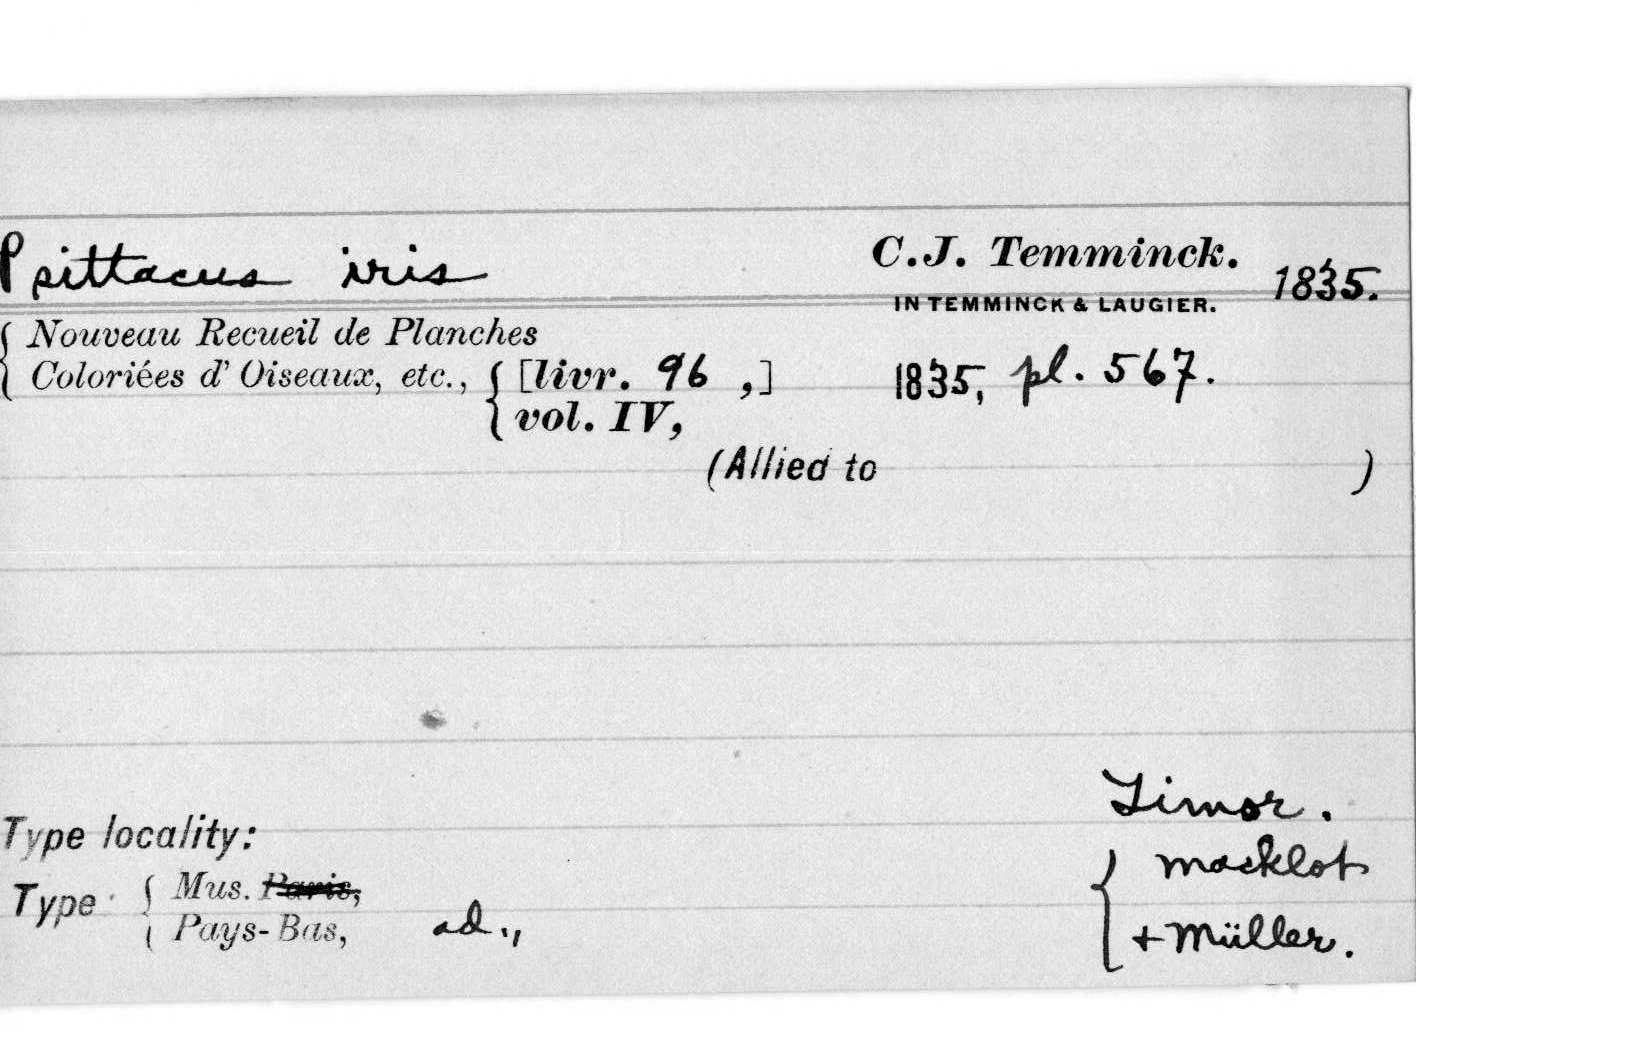 Psittacus iris C.J. Temminck. 1835.
IN TEMMINCK & LAUGIER.
Nouveau Recueil de Planches
Coloriées d' Oiseaux, etc., [livr. 96 ,] 1835, pl. 567.
vol. IV,
(Allied to )
Timor.
Type locality:
Macklot
Type Mus. Paris,
Pays-Bas, ad., + Müller.